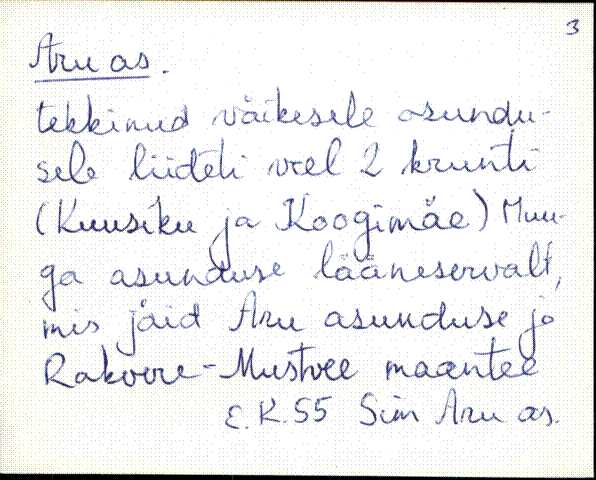 3
Aru as.
tekkinud väikesele asundu-
sele liideti veel 2 krunti
(Kuusiku ja Koogimäe) Muu-
ga asunduse lääneservalt,
mis jäid Aru asunduse ja
Rakvere-Mustvee maantee
E.K. 55 Sim Aru as.